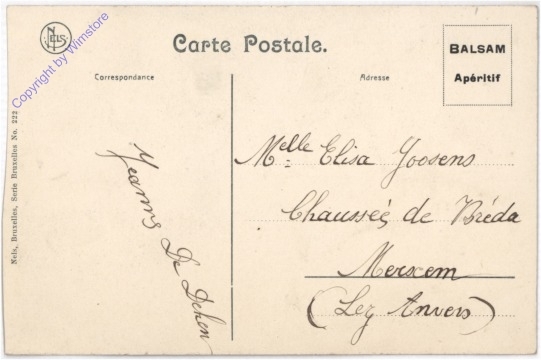 NELS
Carte Postale.
BALSAM
Apéritif
Correspondance
Adresse
Copyright by Wimstore
Nels, Bruxelles, Serie Bruxelles No. 222
Melle Elisa Goosens
Chaussée de Bréda
Merxem
(Lez Anvers)
Jeanns De Dehen